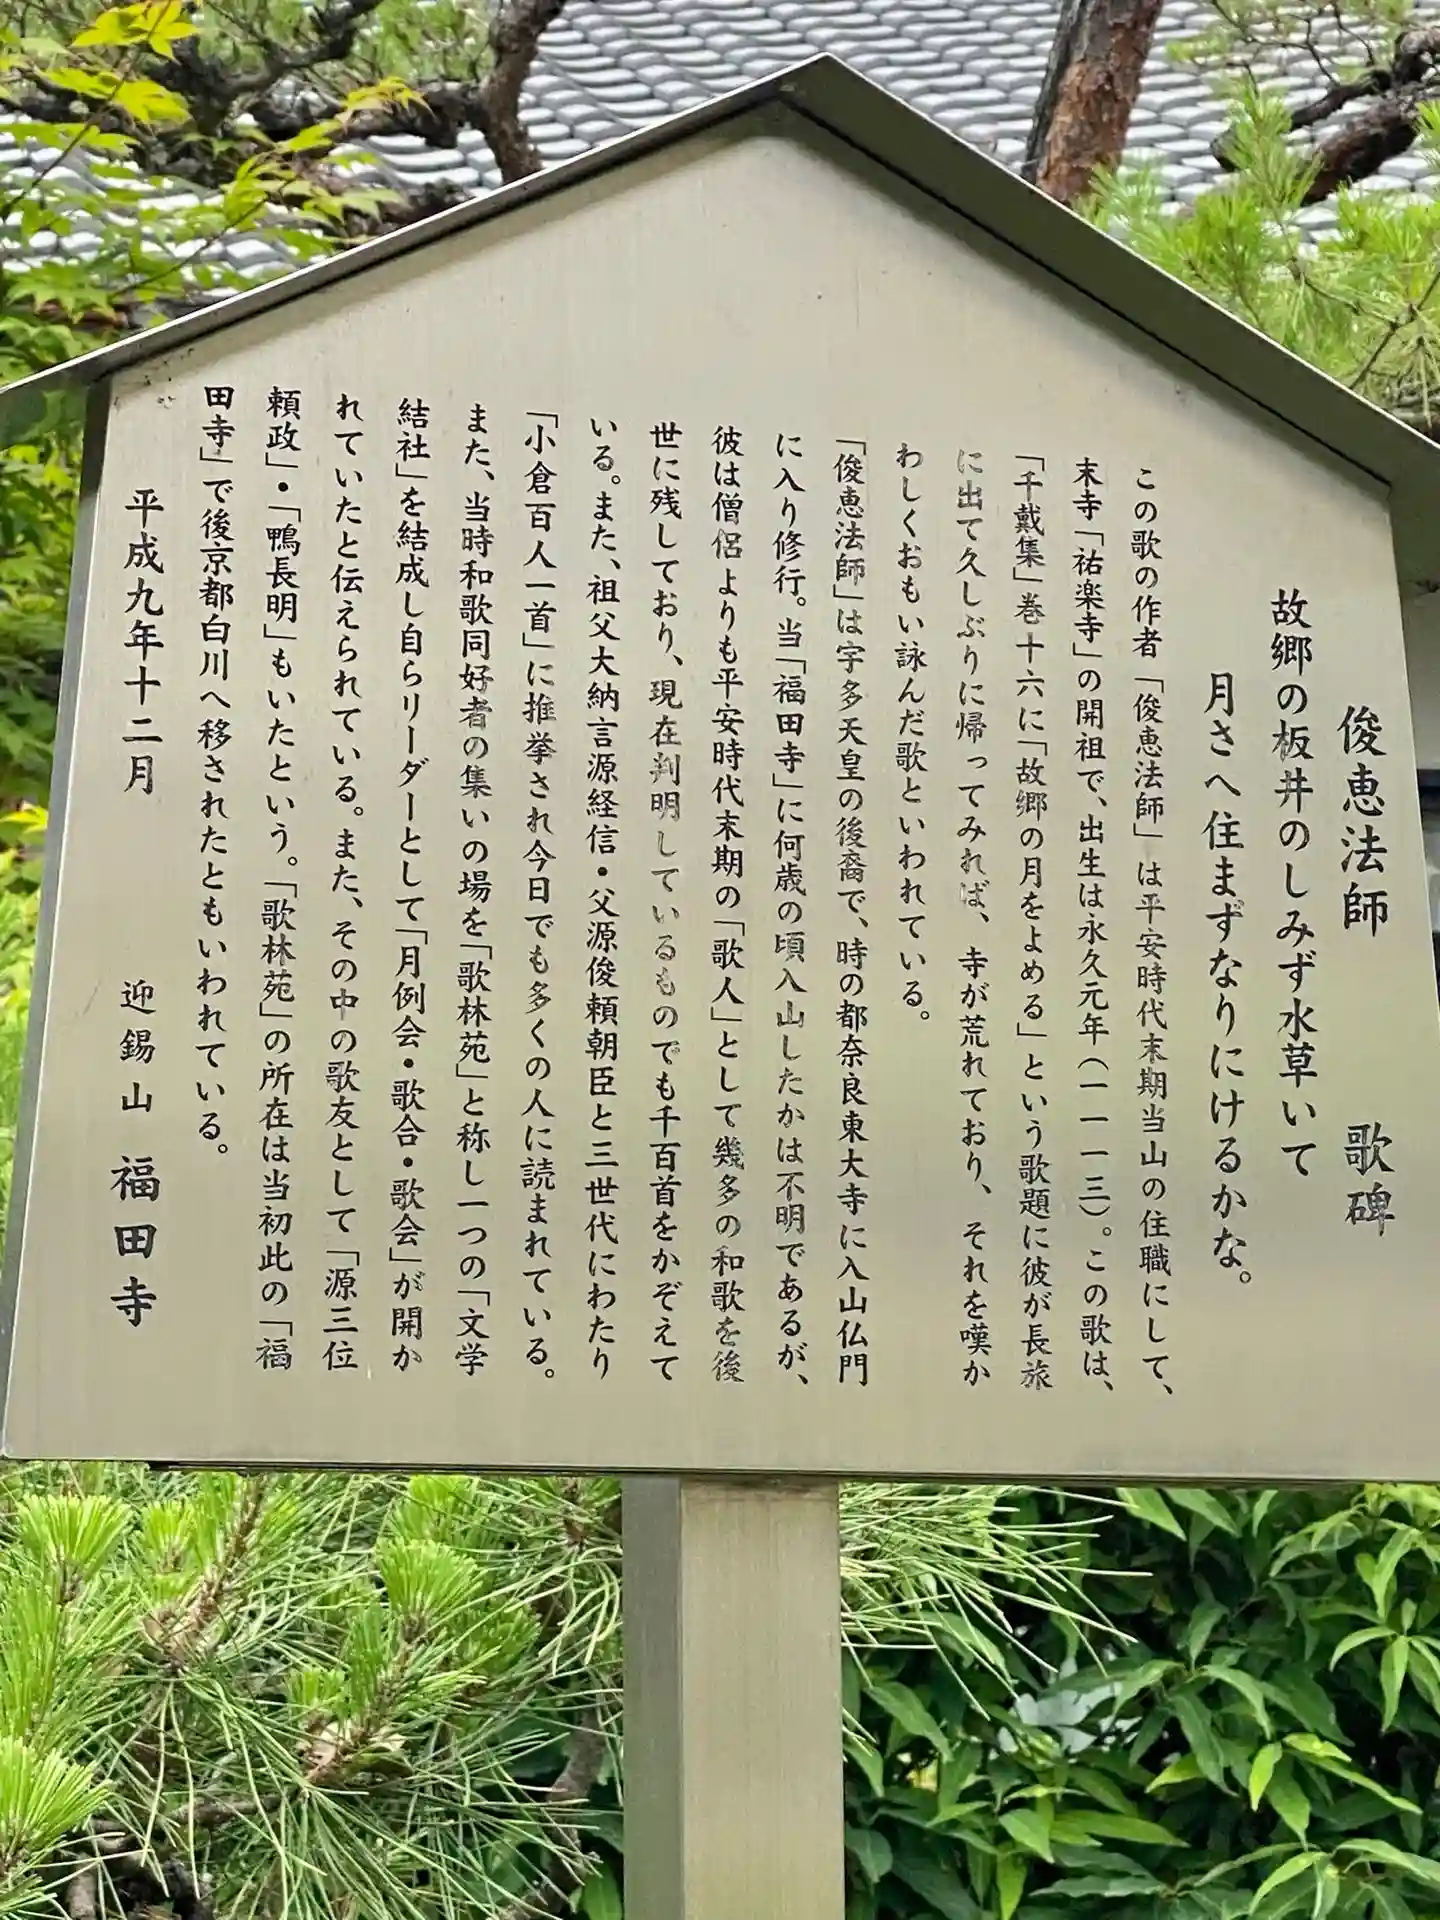 俊恵法師　歌碑
故郷の板井のしみず水草いて
月さへ住まずなりにけるかな。
この歌の作者「俊恵法師」は平安時代末期当山の住職にして、
末寺「祐楽寺」の開祖で、出生は永久元年（一一一三）。この歌は、
「千戴集」巻十六に「故郷の月をよめる」という歌題に彼が長旅
に出て久しぶりに帰ってみれば、寺が荒れており、それを嘆か
わしくおもい詠んだ歌といわれている。
「俊恵法師」は宇多天皇の後裔で、時の都奈良東大寺に入山仏門
に入り修行。当「福田寺」に何歳の頃入山したかは不明であるが、
彼は僧侶よりも平安時代末期の「歌人」として幾多の和歌を後
世に残しており、現在判明しているものでも千百首をかぞえて
いる。また、祖父大納言源経信・父源俊頼朝臣と三世代にわたり
「小倉百人一首」に推挙され今日でも多くの人に読まれている。
また、当時和歌同好者の集いの場を「歌林苑」と称し一つの「文学
結社」を結成し自らリーダーとして「月例会・歌合・歌会」が開か
れていたと伝えられている。また、その中の歌友として「源三位
頼政」・「鴨長明」もいたという。「歌林苑」の所在は当初此の「福
田寺」で後京都白川へ移されたともいわれている。
平成九年十二月　迎錫山　福田寺